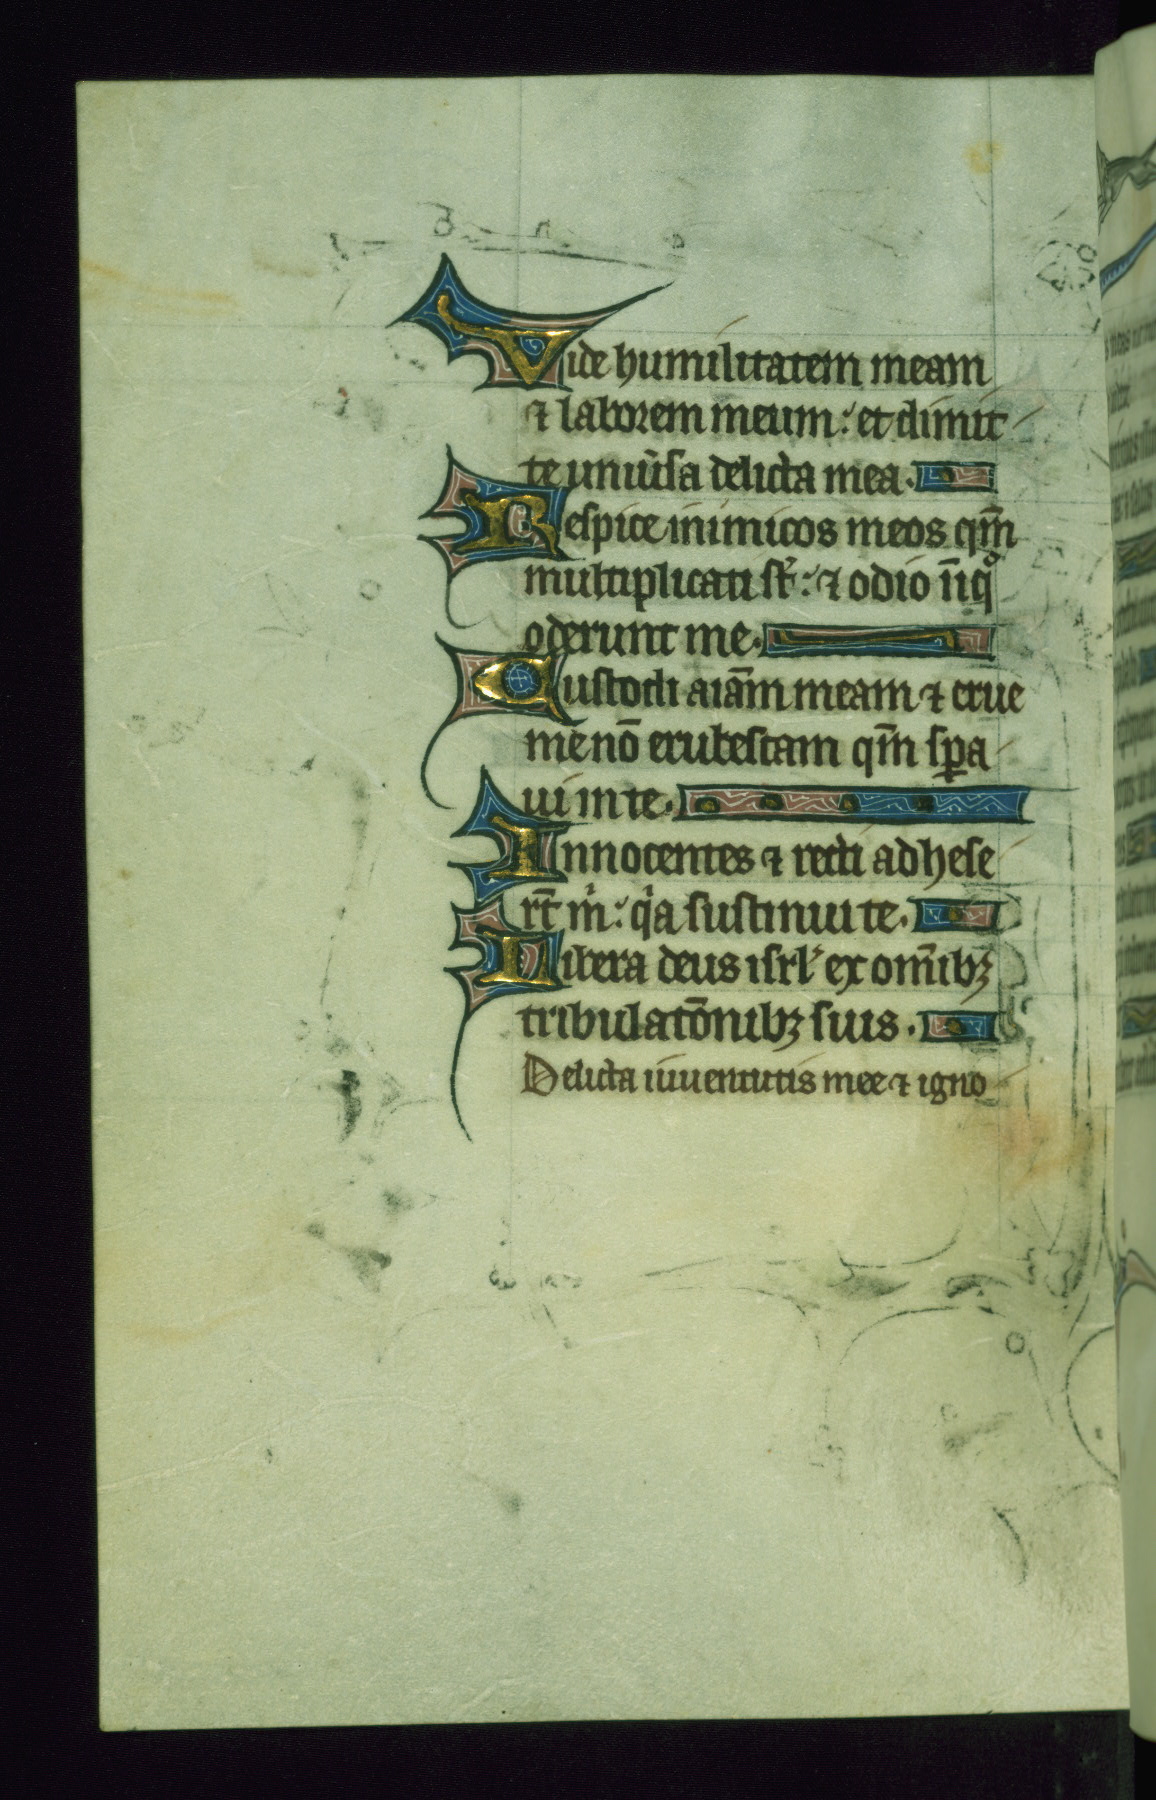 Vide humilitatem meam
⁊ laborem meum: et dimit
te uniu̾sa delicta mea.
Respice inimicos meos qm̄
multiplicati st̄: ⁊ odio iniqͦ
oderunt me.
Custodi aīam meam ⁊ erue
me nō erubescam qm̄ sꝑa
ui in te.
Innocentes ⁊ recti adhese
rt̄ mͥ: qͥa sustinui te.
Libera deus isrl̾ ex om̄ibꝫ
tribulatōnibꝫ suis.
Delicta iuuentutis mee ⁊ igno